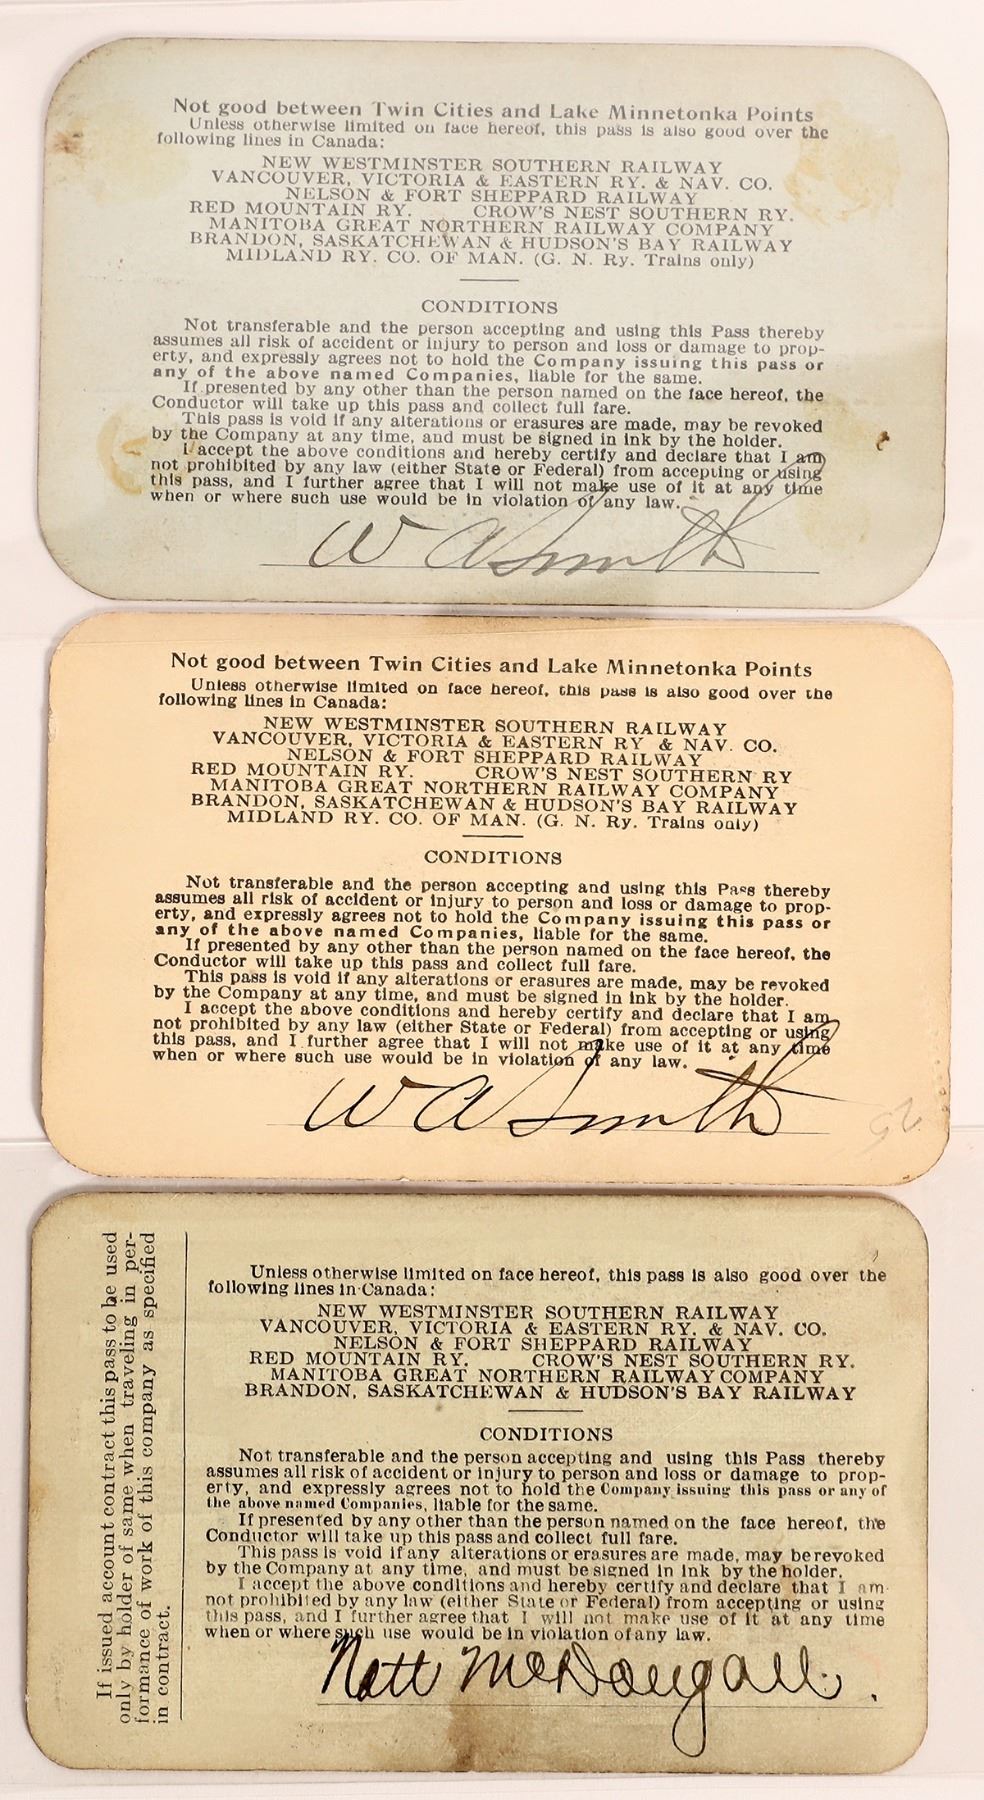 Not good between Twin Cities and Lake Minnetonka Points
Unless otherwise limited on face hereof, this pass is also good over the
following lines in Canada:
NEW WESTMINSTER SOUTHERN RAILWAY
VANCOUVER, VICTORIA & EASTERN RY. & NAV. CO.
NELSON & FORT SHEPPARD RAILWAY
RED MOUNTAIN RY. CROW'S NEST SOUTHERN RY.
MANITOBA GREAT NORTHERN RAILWAY COMPANY
BRANDON, SASKATCHEWAN & HUDSON'S BAY RAILWAY
MIDLAND RY. CO. OF MAN. (G. N. Ry. Trains only)
CONDITIONS
Not transferable and the person accepting and using this Pass thereby
assumes all risk of accident or injury to person and loss or damage to prop-
erty, and expressly agrees not to hold the Company issuing this pass or
any of the above named Companies, liable for the same.
If presented by any other than the person named on the face hereof, the
Conductor will take up this pass and collect full fare.
This pass is void if any alterations or erasures are made, may be revoked
by the Company at any time, and must be signed in ink by the holder.
I accept the above conditions and hereby certify and declare that I am
not prohibited by any law (either State or Federal) from accepting or using
this pass, and I further agree that I will not make use of it at any time
when or where such use would be in violation of any law.
W A Smith
Not good between Twin Cities and Lake Minnetonka Points
Unless otherwise limited on face hereof, this pass is also good over the
following lines in Canada:
NEW WESTMINSTER SOUTHERN RAILWAY
VANCOUVER, VICTORIA & EASTERN RY & NAV. CO.
NELSON & FORT SHEPPARD RAILWAY
RED MOUNTAIN RY. CROW'S NEST SOUTHERN RY
MANITOBA GREAT NORTHERN RAILWAY COMPANY
BRANDON, SASKATCHEWAN & HUDSON'S BAY RAILWAY
MIDLAND RY. CO. OF MAN. (G. N. Ry. Trains only)
CONDITIONS
Not transferable and the person accepting and using this Pass thereby
assumes all risk of accident or injury to person and loss or damage to prop-
erty, and expressly agrees not to hold the Company issuing this pass or
any of the above named Companies, liable for the same.
If presented by any other than the person named on the face hereof, the
Conductor will take up this pass and collect full fare.
This pass is void if any alterations or erasures are made, may be revoked
by the Company at any time, and must be signed in ink by the holder.
I accept the above conditions and hereby certify and declare that I am
not prohibited by any law (either State or Federal) from accepting or using
this pass, and I further agree that I will not make use of it at any time
when or where such use would be in violation of any law.
W A Smith
If issued account contract this pass to be used
only by holder of same when traveling in per-
formance of work of this company as specified
in contract.
Unless otherwise limited on face hereof, this pass is also good over the
following lines in Canada:
NEW WESTMINSTER SOUTHERN RAILWAY
VANCOUVER, VICTORIA & EASTERN RY. & NAV. CO.
NELSON & FORT SHEPPARD RAILWAY
RED MOUNTAIN RY. CROW'S NEST SOUTHERN RY.
MANITOBA GREAT NORTHERN RAILWAY COMPANY
BRANDON, SASKATCHEWAN & HUDSON'S BAY RAILWAY
CONDITIONS
Not transferable and the person accepting and using this Pass thereby
assumes all risk of accident or injury to person and loss or damage to prop-
erty, and expressly agrees not to hold the Company issuing this pass or any of
the above named Companies, liable for the same.
If presented by any other than the person named on the face hereof, the
Conductor will take up this pass and collect full fare.
This pass is void if any alterations or erasures are made, may be revoked
by the Company at any time, and must be signed in ink by the holder.
I accept the above conditions and hereby certify and declare that I am
not prohibited by any law (either State or Federal) from accepting or using
this pass, and I further agree that I will not make use of it at any time
when or where such use would be in violation of any law.
Natt McDougall.